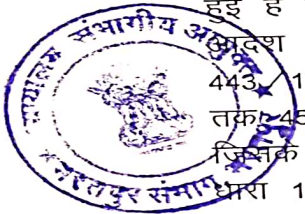 न्यायालय संभागीय आयुक्त
भरतपुर संभाग
हुई है
आदेश
443/1
तक
जिसके
धारा 1